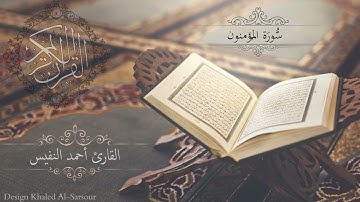 سُورَة المؤمنون
القرآن الكريم
القارئ أحمد النفيس
Design Khaled Al-Sarsour